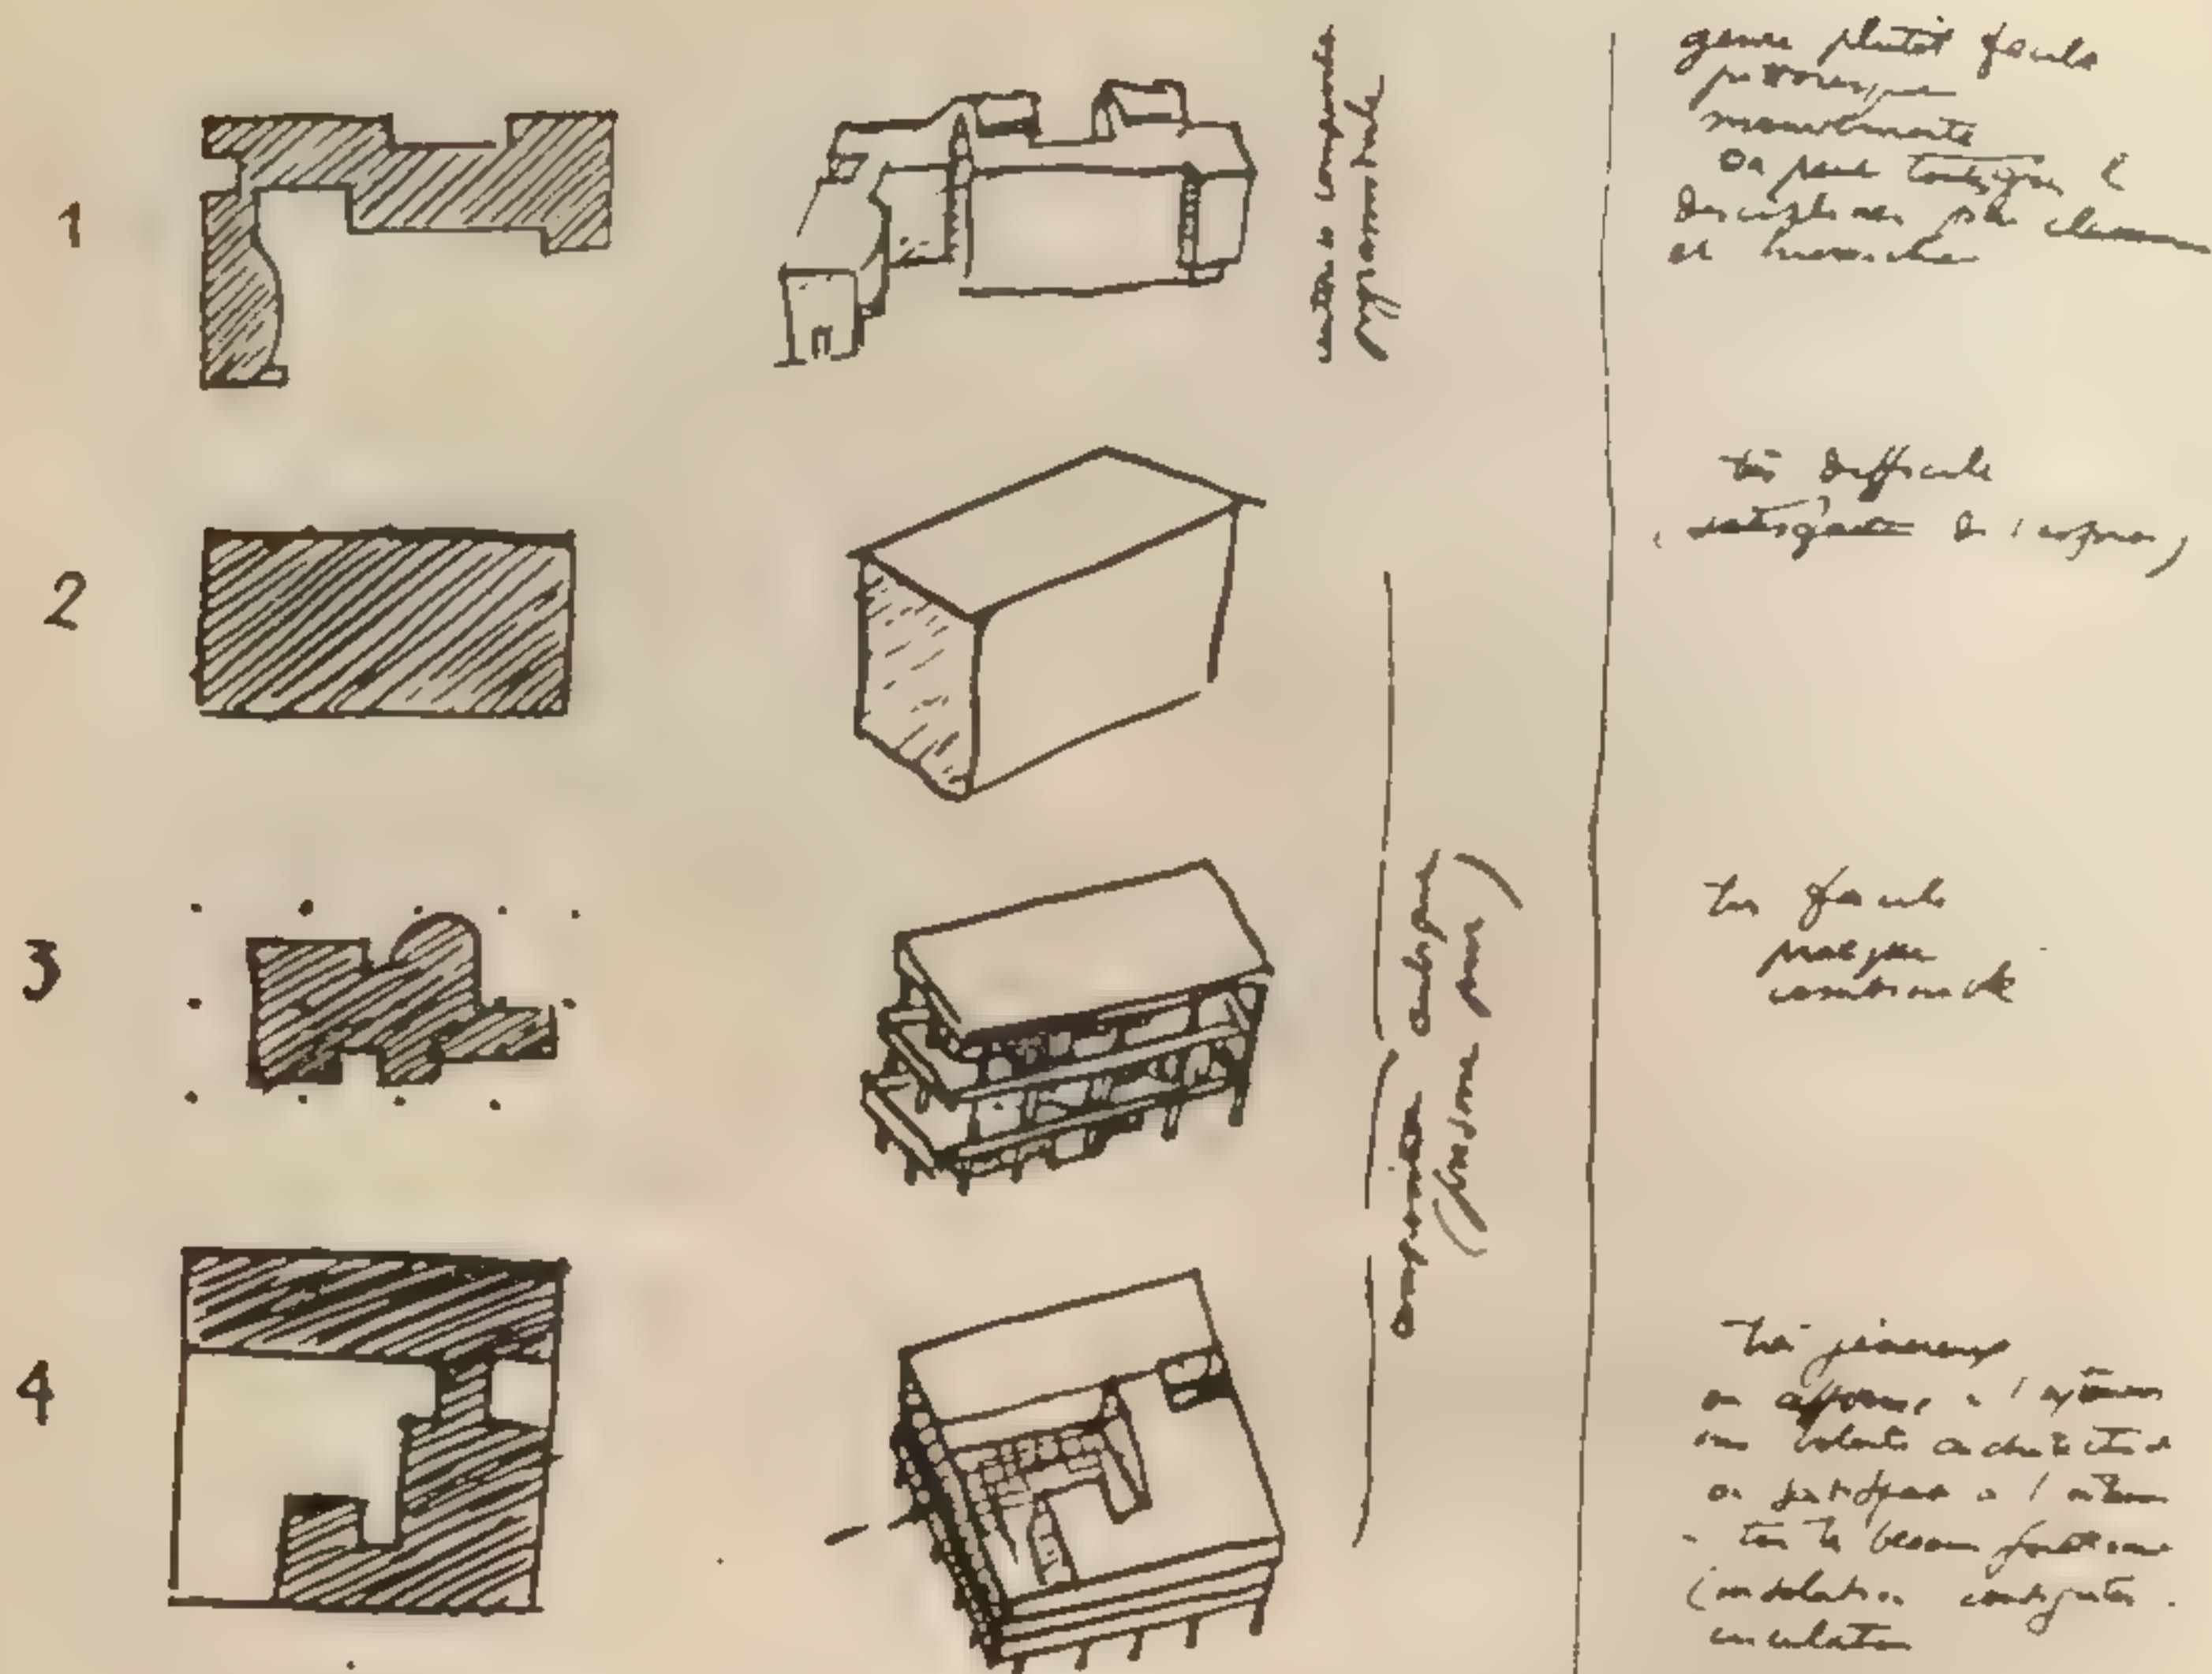 1
genre plutôt facile
pittoresque
mouvementé
On peut toutefois le
discipliner par classement
et hiérarchie
2
très difficile
(satisfaction de l'esprit)
3
très facile
pratique
combinable
4
très généreux
on affirme à l'extérieur
une volonté architecturale
on satisfait à l'intérieur
à tous les besoins fonctionnels
(insolation, contiguïtés
circulation
composition cubique
(prisme pur)
pyramidale